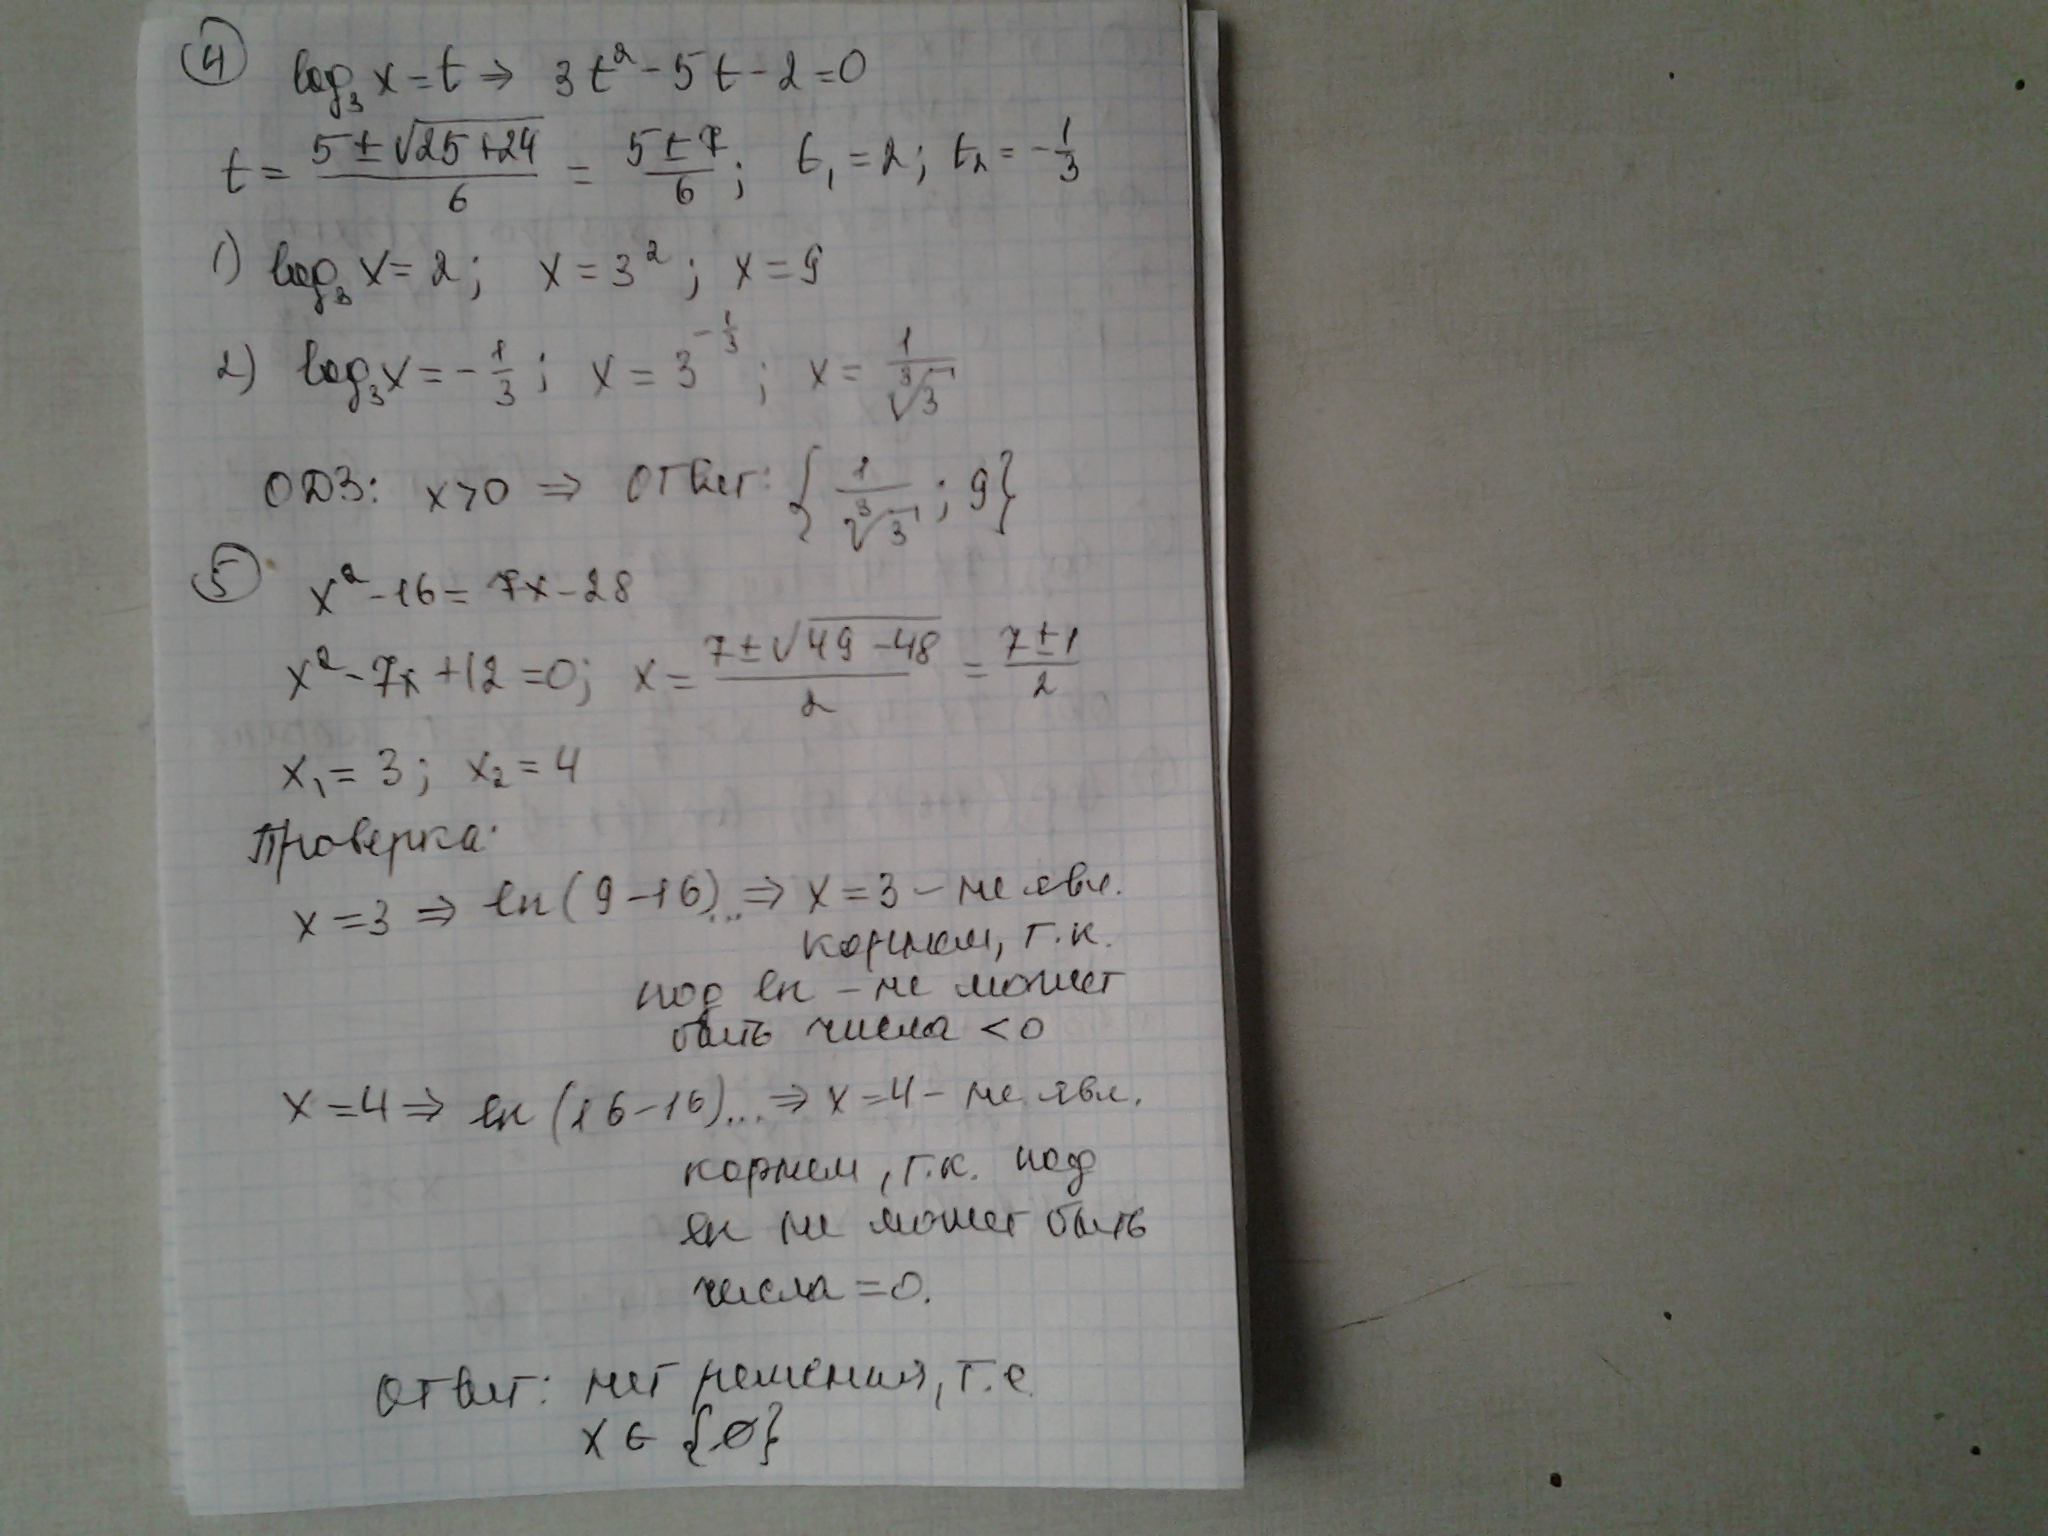 ④ log₃ x = t ⇒ 3t² - 5t - 2 = 0
t = (5 ± √(25 + 24))/6 = (5 ± 7)/6; t₁ = 2; t₂ = -1/3
1) log₃ x = 2; x = 3²; x = 9
2) log₃ x = -1/3; x = 3^(-1/3); x = 1/∛3
ОДЗ: x > 0 ⇒ Ответ: {1/∛3; 9}
⑤ x² - 16 = 7x - 28
x² - 7x + 12 = 0; x = (7 ± √(49 - 48))/2 = (7 ± 1)/2
x₁ = 3; x₂ = 4
Проверка:
x = 3 ⇒ ln(9 - 16)... ⇒ x = 3 - не явл.
корнем, т.к.
под ln - не может
быть числа < 0
x = 4 ⇒ ln(16 - 16)... ⇒ x = 4 - не явл.
корнем, т.к. под
ln не может быть
числа = 0.
Ответ: нет решения, т.е.
x ∈ {∅}